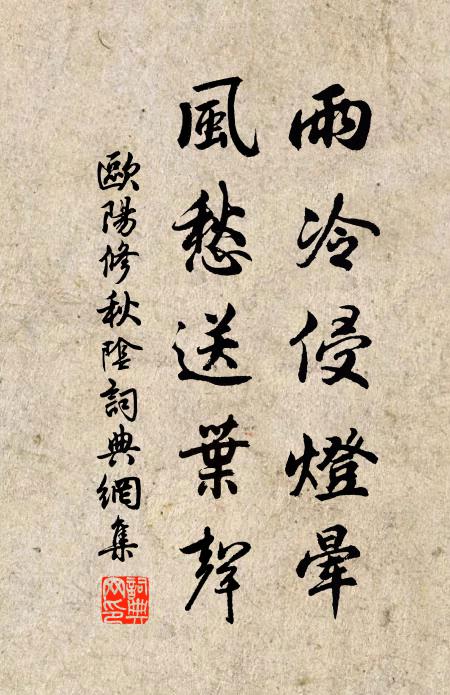 雨冷侵燈暈
風愁送葉聲
歐陽修秋陰詞典網集
詞典网印